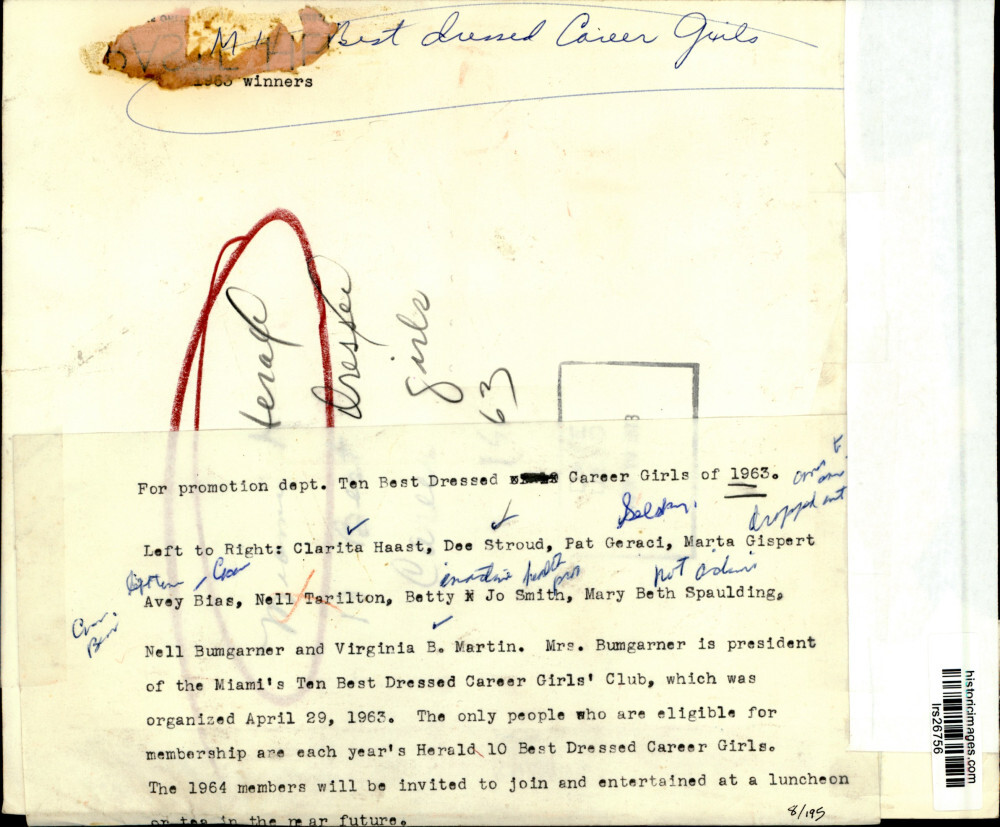 Best dressed Career Girls
1963 winners
Herald
Dresser
girls
63
For promotion dept. Ten Best Dressed Career Girls of 1963.
dropped out
Seldom.
Left to Right: Clarita Haast, Dee Stroud, Pat Geraci, Marta Gispert
inactive health
not
Avey Bias, Nell Tarilton, Betty N Jo Smith, Mary Beth Spaulding,
Nell Bumgarner and Virginia B. Martin. Mrs. Bumgarner is president
of the Miami's Ten Best Dressed Career Girls' Club, which was
organized April 29, 1963. The only people who are eligible for
membership are each year's Herald 10 Best Dressed Career Girls.
The 1964 members will be invited to join and entertained at a luncheon
or tea in the ne ar future.
8/195
historicimages.com
lrs26756